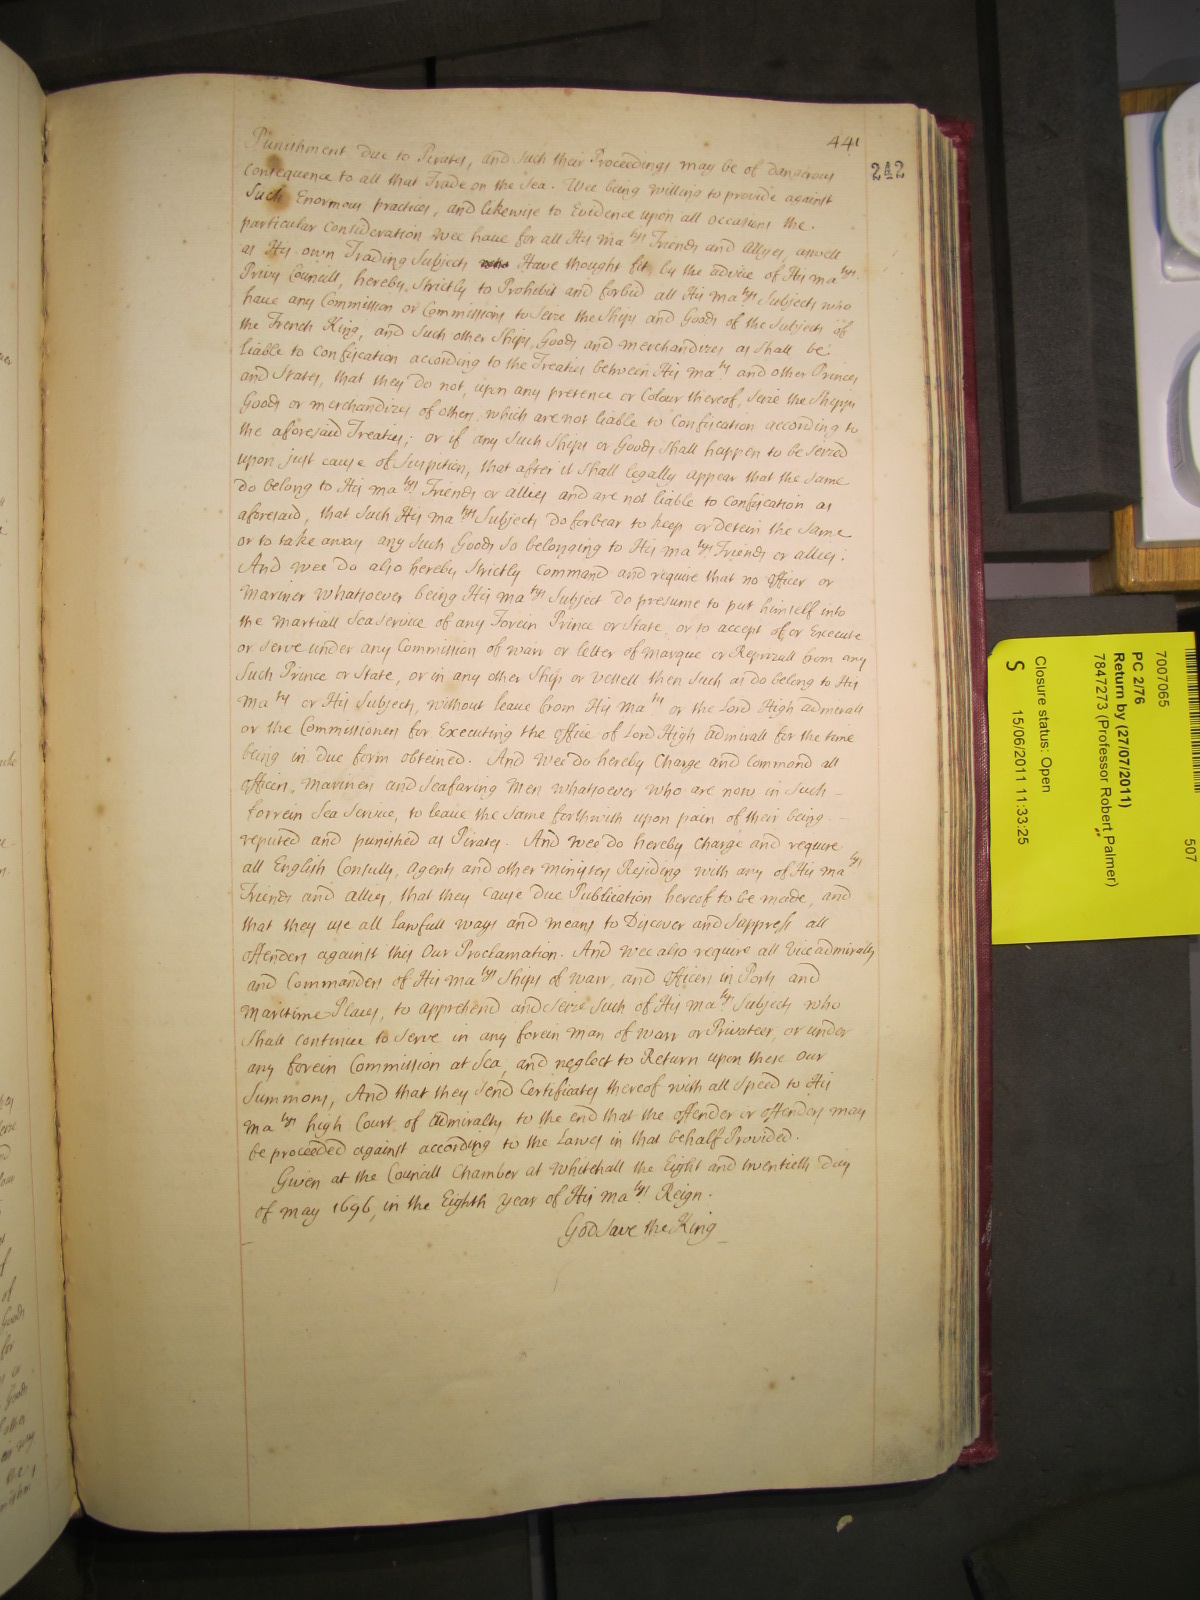 441
242
Punishment due to Pirates, and such their Proceedings may be of dangerous
consequence to all that Trade on the Sea. Wee being willing to provide against
Such Enormous practices, and likewise to Evidence upon all occasions the
particular consideration wee have for all His Ma^tys Friends and Allyes, aswell
as His own Trading Subjects who Have thought fit, by the advice of His Ma^tys
Privy Councill, hereby Strictly to Prohibit and forbid all His Ma^tys Subjects who
have any Commission or Commissions to Seize the Ships and Goods of the Subjects of
the French King, and such other Ships, Goods and merchandizes as shall be
liable to Confiscation according to the Treaties between His Ma^ty and other Princes
and States, that they do not, upon any pretence or Colour thereof, seize the Shipps
Goods or merchandizes of others, which are not liable to Confiscation according to
the aforesaid Treaties; or if any such Ships or Goods shall happen to be seized
upon just cause of Suspition, that after it shall legally appear that the same
do belong to His Ma^tys Friends or allies and are not liable to Confiscation as
aforesaid, that Such His Ma^tys Subjects do forbear to keep or Detein the same
or to take away any such Goods so belonging to His Ma^tys Friends or allies.
And wee do also hereby Strictly Command and require that no Officer or
Mariner whatsoever being His Ma^tys Subject do presume to put himself into
the Martiall Sea Service of any Forein Prince or State, or to accept of or Execute
or Serve under any Commission of warr or letter of Marque or Reprizall from any
Such Prince or State, or in any other Ship or vessell then Such as do belong to His
Ma^ty or His Subjects, without leave from His Ma^ty or the Lord High admirall
or the Commissioners for Executing the office of Lord High admirall for the time
being in due form obteined. And wee do hereby Charge and Command all
Officers, Mariners and Seafaring Men whatsoever who are now in Such
forrein Sea Service, to leave the same forthwith upon pain of their being
reputed and punished as Pirates. And wee do hereby Charge and require
all English Consulls, Agents and other ministers Residing with any of His Ma^tys
Friends and allies, that they cause due Publication hereof to be made, and
that they use all lawfull ways and means to Discover and Suppress all
Offenders against this Our Proclamation. And wee also require all Vice admiralls
and Commanders of His Ma^tys Ships of warr, and Officers in Ports and
Maritime Places, to apprehend and seize such of His Ma^tys Subjects who
Shall continue to serve in any forein Man of warr or Privateer, or under
any forein Commission at Sea, and neglect to Return upon these Our
Summons, And that they send Certificates thereof with all speed to His
Ma^tys high Court of Admiralty to the end that the Offender or Offenders may
be proceeded against according to the Lawes in that behalf Provided.
Given at the Councill Chamber at Whitehall the Eight and twentieth Day
of May 1696, in the Eighth Year of His Ma^tys Reign.
God save the King
7007065
507
PC 2/76
Return by (27/07/2011)
7847273 (Professor Robert Palmer)
Closure status: Open
S
15/06/2011 11:33:25